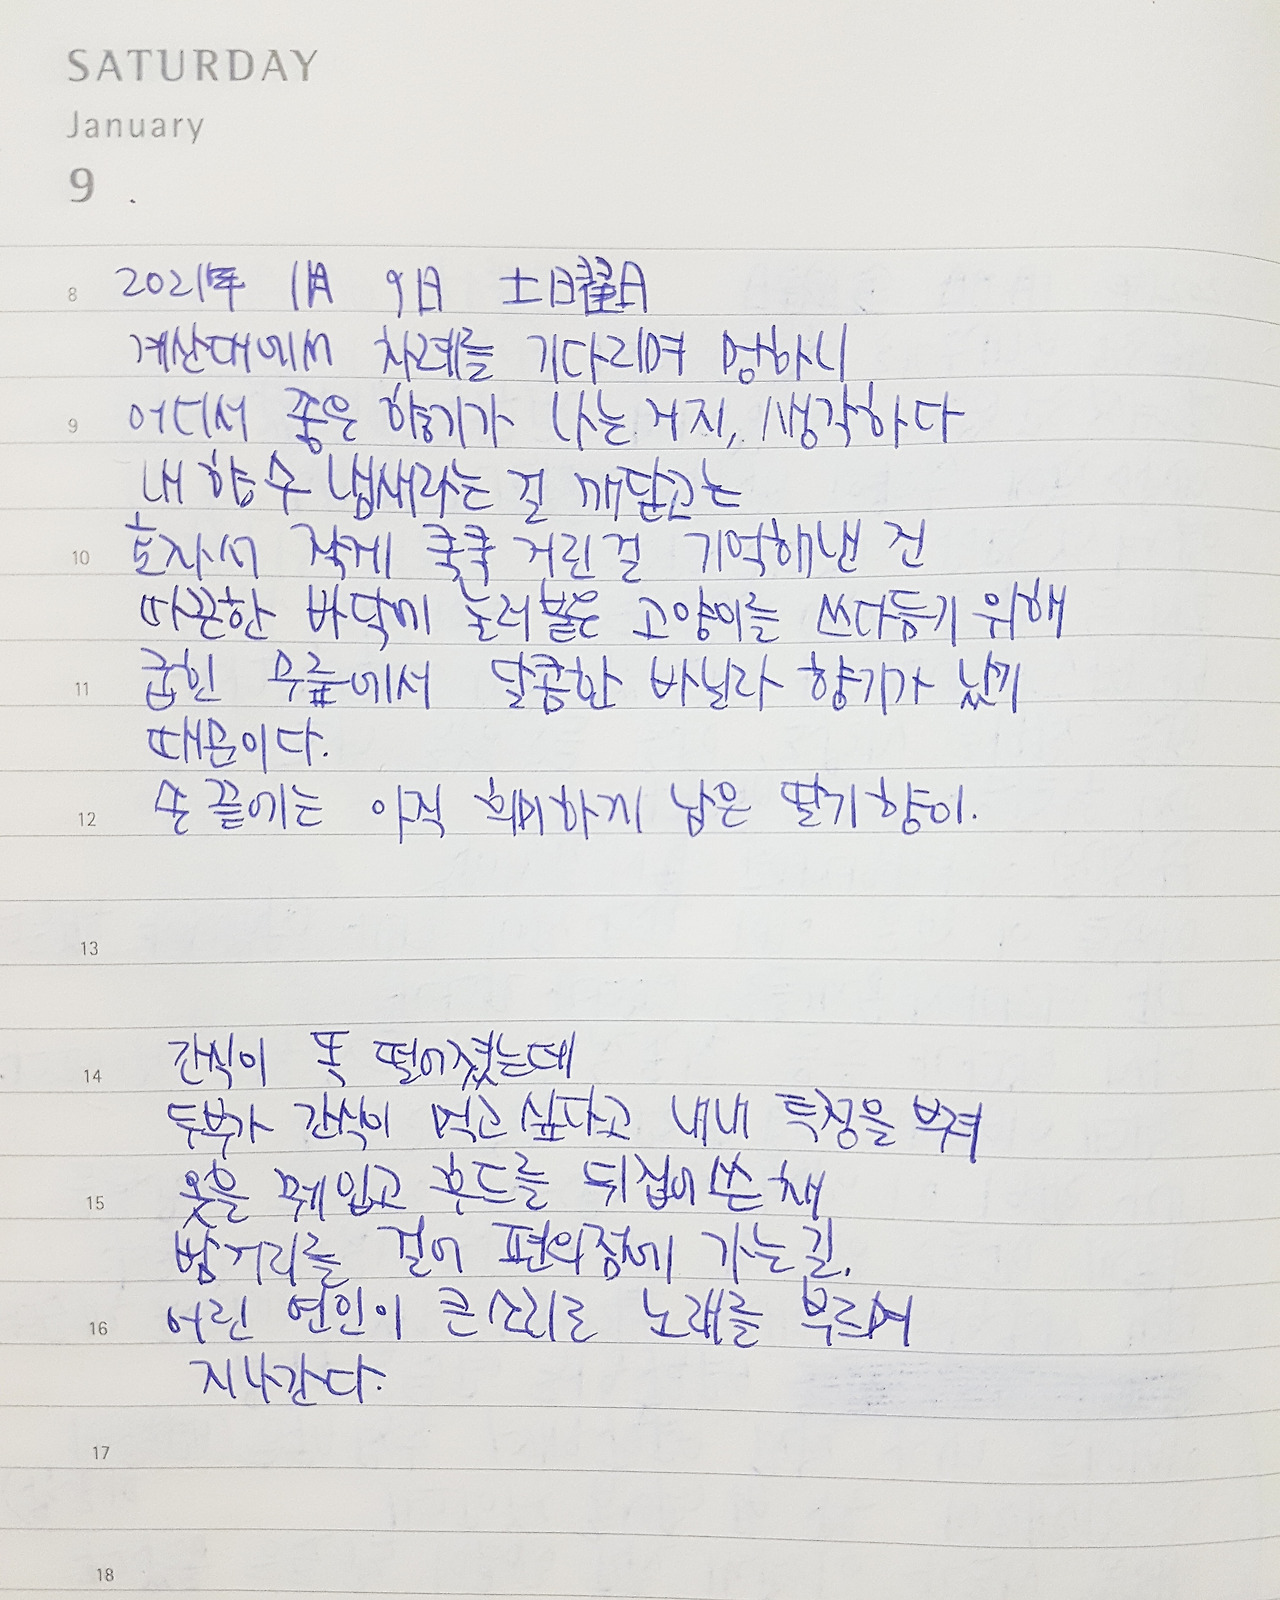 SATURDAY
January
9
8 2021年 1月 9日 土日曜日
계산대에서 차례를 기다리며 멍하니
9 어디서 좋은 향기가 나는거지, 생각하다
내 향수 냄새라는 걸 깨닫고는
10 혼자서 작게 쿡쿡 거린걸 기억해낸 건
따끈한 바닥에 눌러붙은 고양이를 쓰다듬기 위해
11 굽힌 무릎에서 달콤한 바닐라 향기가 났기
때문이다.
12 손끝에는 아직 희미하게 남은 딸기향이.
13
14 간식이 똑 떨어졌는데
두부가 간식이 먹고싶다고 내내 투정을 부려
15 옷을 꿰입고 후드를 뒤집어쓴 채
밤거리를 걸어 편의점에 가는 길.
16 어린 연인이 큰소리로 노래를 부르며
지나간다.
17
18